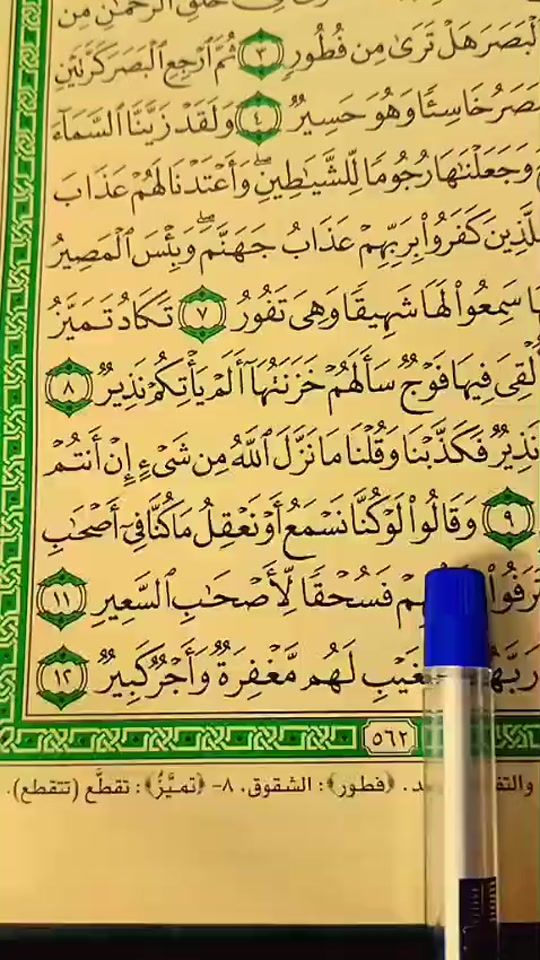 خلق الرحمن من
الْبَصَرَ هَلْ تَرَىٰ مِن فُطُورٍ ٣ ثُمَّ ارْجِعِ الْبَصَرَ كَرَّتَيْنِ
خَاسِئًا وَهُوَ حَسِيرٌ ٤ وَلَقَدْ زَيَّنَّا السَّمَاءَ
وَجَعَلْنَاهَا رُجُومًا لِّلشَّيَاطِينِ ۖ وَأَعْتَدْنَا لَهُمْ عَذَابَ
لِلَّذِينَ كَفَرُوا بِرَبِّهِمْ عَذَابُ جَهَنَّمَ ۖ وَبِئْسَ الْمَصِيرُ
سَمِعُوا لَهَا شَهِيقًا وَهِيَ تَفُورُ ٧ تَكَادُ تَمَيَّزُ
أُلْقِيَ فِيهَا فَوْجٌ سَأَلَهُمْ خَزَنَتُهَا أَلَمْ يَأْتِكُمْ نَذِيرٌ ٨
نَذِيرٌ فَكَذَّبْنَا وَقُلْنَا مَا نَزَّلَ اللَّهُ مِن شَيْءٍ إِنْ أَنتُمْ
٩ وَقَالُوا لَوْ كُنَّا نَسْمَعُ أَوْ نَعْقِلُ مَا كُنَّا فِي أَصْحَابِ
فَسُحْقًا لِّأَصْحَابِ السَّعِيرِ ١١
لَهُم مَّغْفِرَةٌ وَأَجْرٌ كَبِيرٌ ١٢
٥٦٢
﴿فطور﴾: الشقوق. ٨- ﴿تميَّزُ﴾: تقطَّع (تتقطع).